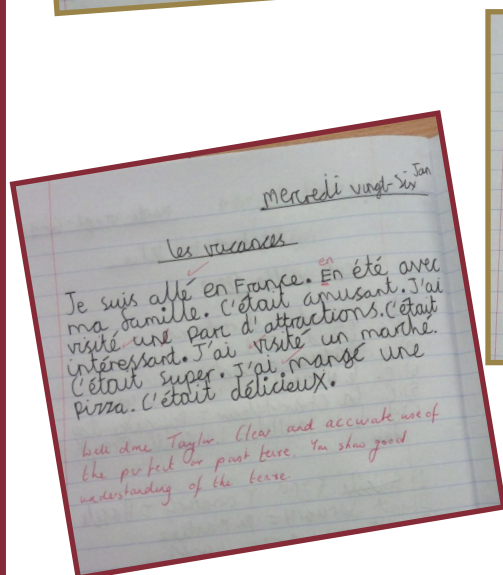 mercredi vingt-six Jan
les vacances
en
Je suis allé en France. En été avec
ma famille. C'était amusant. J'ai
visité une parc d'attractions. C'était
intéressant. J'ai visité un marché.
C'était super. J'ai mangé une
pizza. C'était délicieux.
Well done Taylor. Clear and accurate use of
the perfect or past tense. You show good
understanding of the tense.